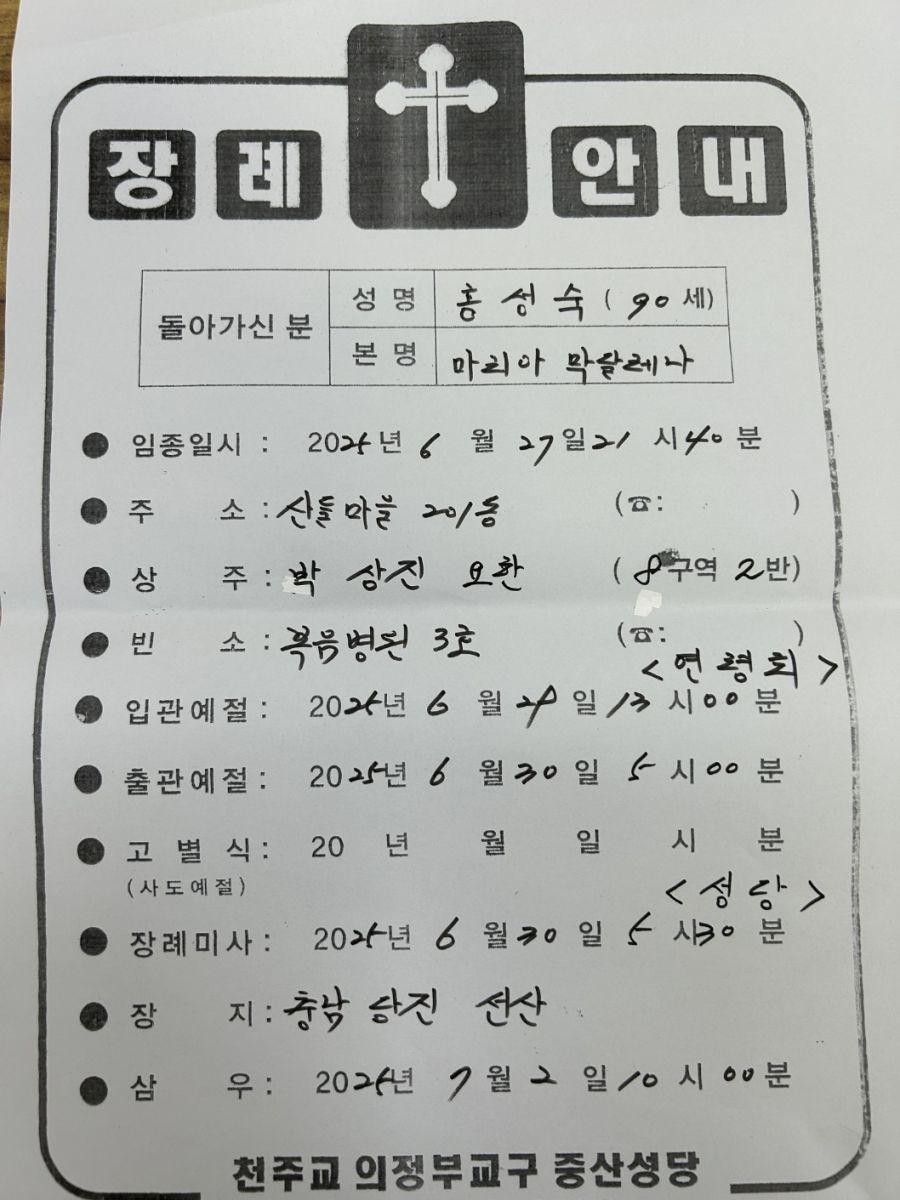 장례 안내
돌아가신 분
성 명 홍성숙 ( 90 세)
본 명 마리아 막달레나
● 임종일시 : 2025년 6 월 27일 21 시 40 분
● 주 소 : 산들마을 201동 (☎: )
● 상 주 : 박 상진 요한 ( 8구역 2반)
● 빈 소 : 복음병원 3호 (☎: )
<연령회>
● 입관예절 : 2025년 6 월 일 13 시 00 분
● 출관예절 : 2025년 6 월 30 일 5 시 00 분
● 고 별 식 : 20 년 월 일 시 분
(사도예절)
<성당>
● 장례미사 : 2025년 6 월 30 일 5 시 30 분
● 장 지 : 충남 당진 선산
● 삼 우 : 2025년 7 월 2 일 10 시 00 분
천주교 의정부교구 중산성당